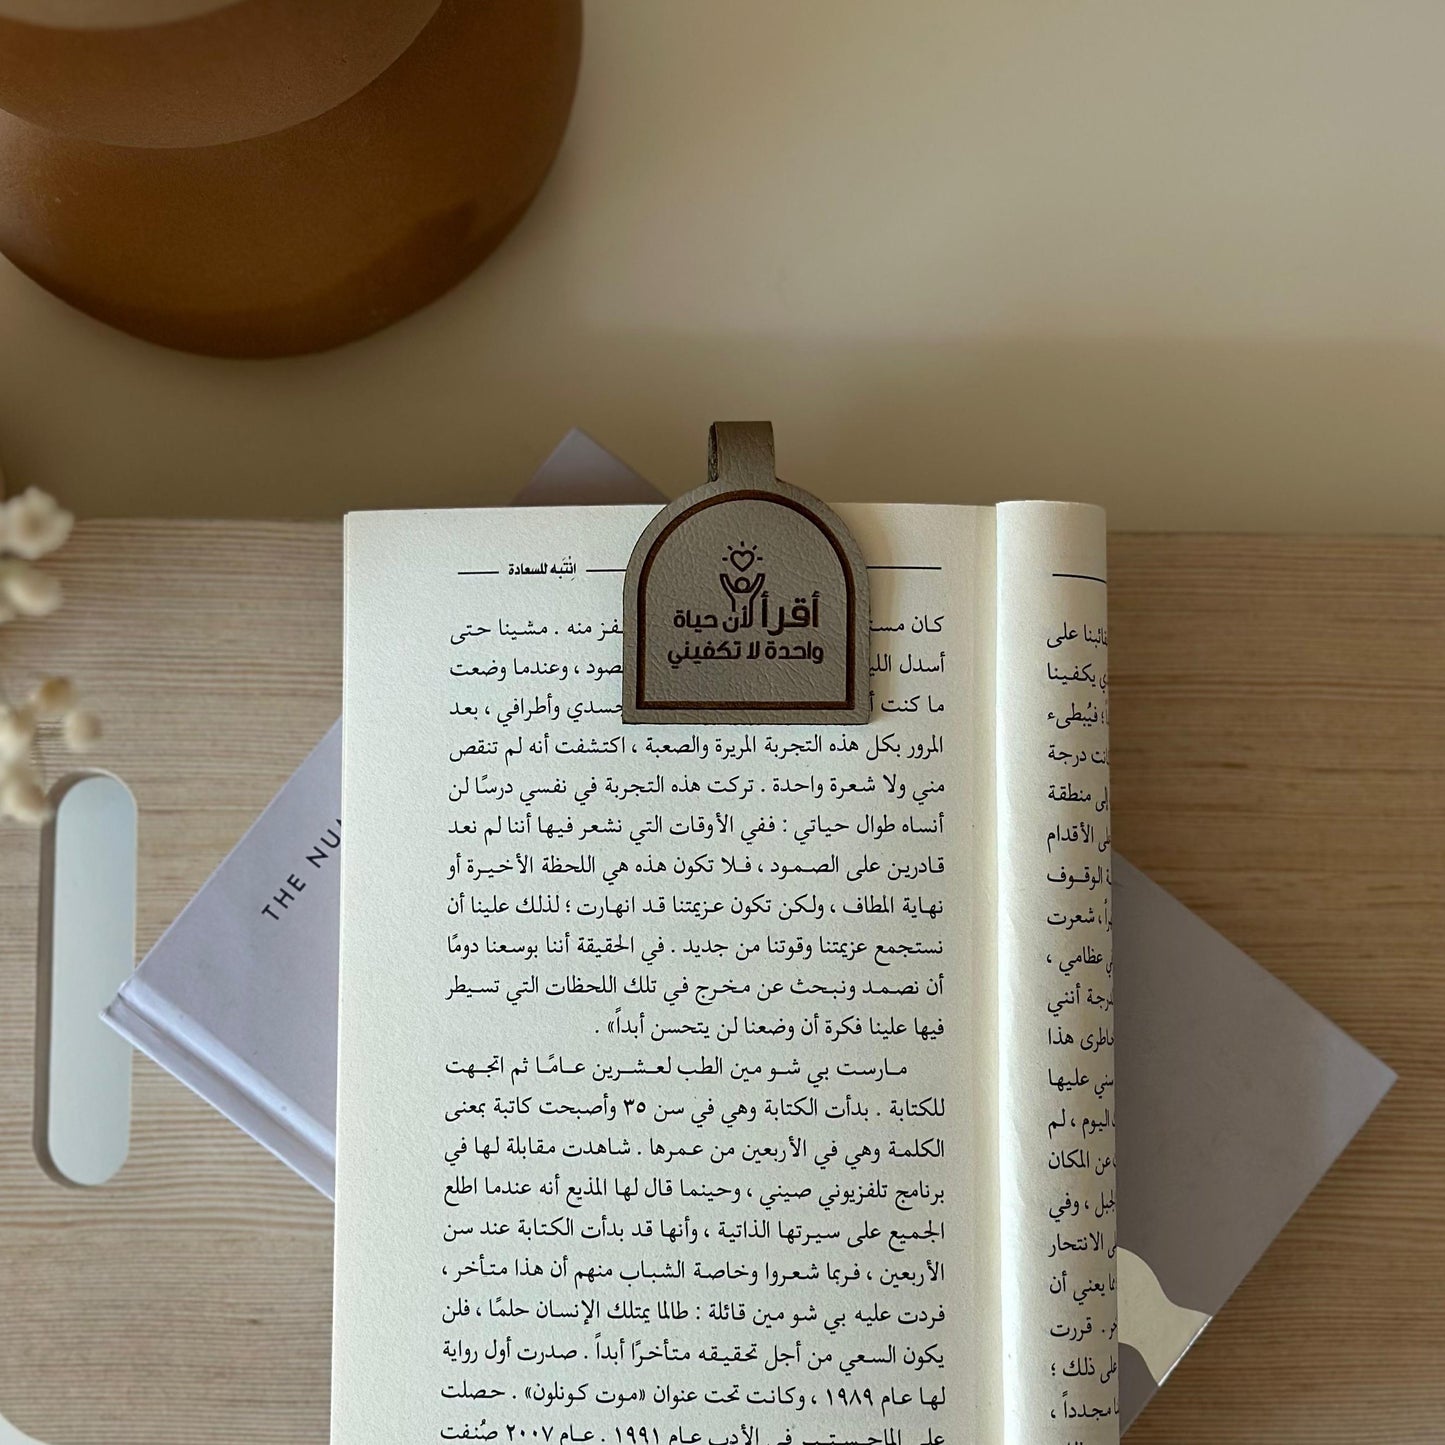 انْتَبه للسعادة
أقرأ لأن حياة
واحدة لا تكفيني
كان
فز منه . مشينا حتى
أسدل
صود ، وعندما وضعت
ما كنت
جسدي وأطرافي ، بعد
المرور بكل هذه التجربة المريرة والصعبة ، اكتشفت أنه لم تنقص
مني ولا شعرة واحدة . تركت هذه التجربة في نفسي درسًا لن
أنساه طوال حياتي : ففي الأوقات التي نشعر فيها أننا لم نعد
قادرين على الصمود ، فلا تكون هذه هي اللحظة الأخيرة أو
نهاية المطاف ، ولكن تكون عزيمتنا قد انهارت ؛ لذلك علينا أن
نستجمع عزيمتنا وقوتنا من جديد . في الحقيقة أننا بوسعنا دومًا
أن نصمد ونبحث عن مخرج في تلك اللحظات التي تسيطر
فيها علينا فكرة أن وضعنا لن يتحسن أبداً» .
مارست بي شو مين الطب لعشرين عامًا ثم اتجهت
للكتابة . بدأت الكتابة وهي في سن ٣٥ وأصبحت كاتبة بمعنى
الكلمة وهي في الأربعين من عمرها . شاهدت مقابلة لها في
برنامج تلفزيوني صيني ، وحينما قال لها المذيع أنه عندما اطلع
الجميع على سيرتها الذاتية ، وأنها قد بدأت الكتابة عند سن
الأربعين ، فربما شعروا وخاصة الشباب منهم أن هذا متأخر ،
فردت عليه بي شو مين قائلة : طالما يمتلك الإنسان حلمًا ، فلن
يكون السعي من أجل تحقيقه متأخرًا أبداً . صدرت أول رواية
لها عام ١٩٨٩ ، وكانت تحت عنوان «موت كونلون» . حصلت
على الماجستير في الأدب عام ١٩٩١ . عام ٢٠٠٧ صُنفت
على
يكفينا
؛ فيُبطىء
درجة
منطقة
الأقدام
الوقوف
، شعرت
عظامي ،
أنني
هذا
عليها
اليوم ، لم
عن المكان
، وفي
الانتحار
يعني أن
. قررت
على ذلك ؛
مجدداً ،
THE